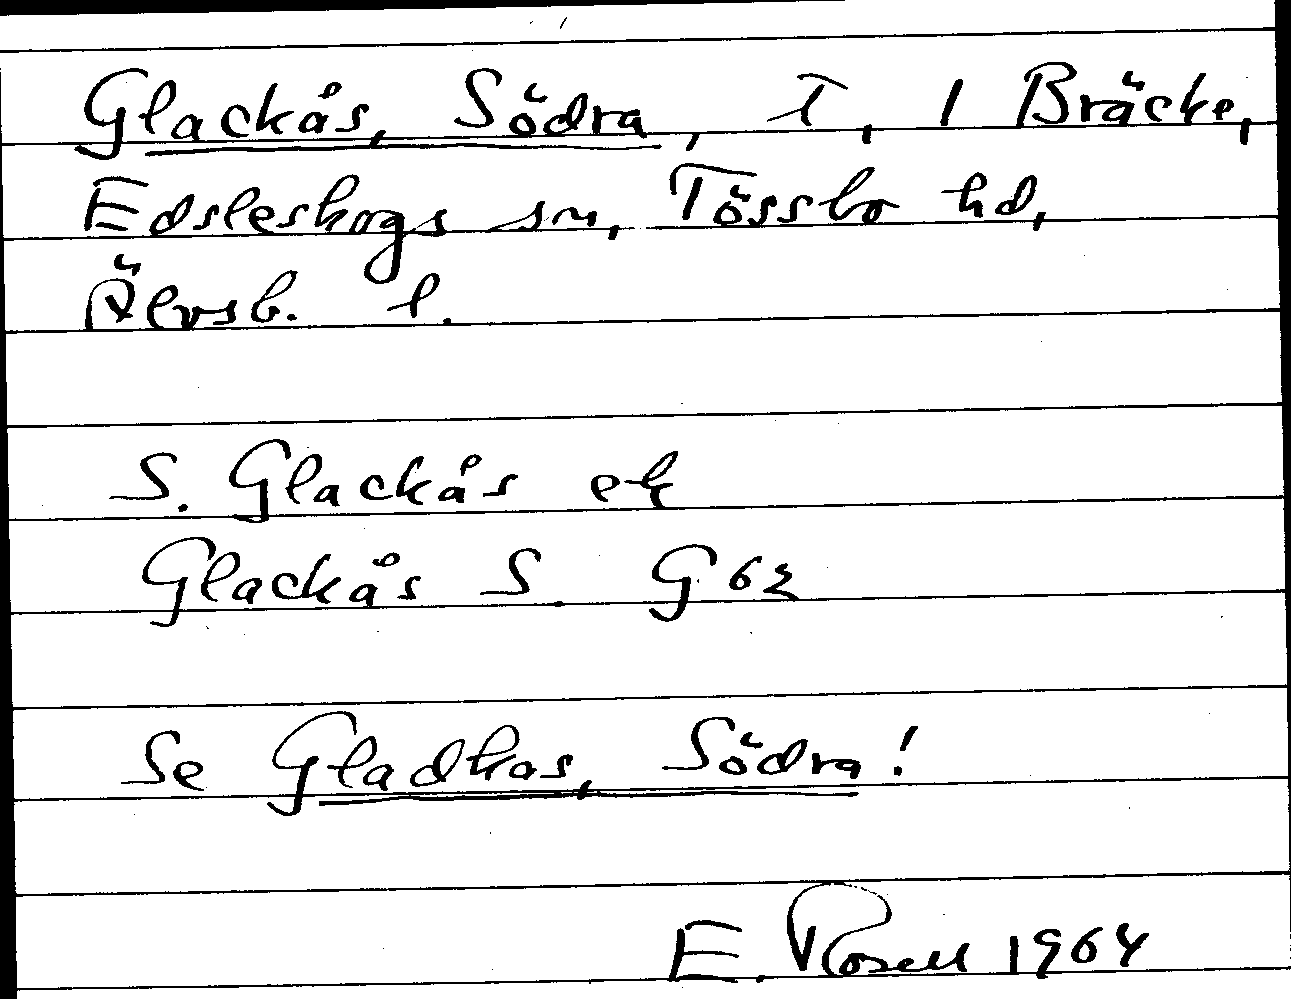 Glackås, Södra, T, 1 Bräcke,
Edsleskogs sn, Tössbo hd,
Älvsb. l.
S. Glackås ek
Glackås S. G 62
Se Gladkas, Södra!
E. Rosell 1964